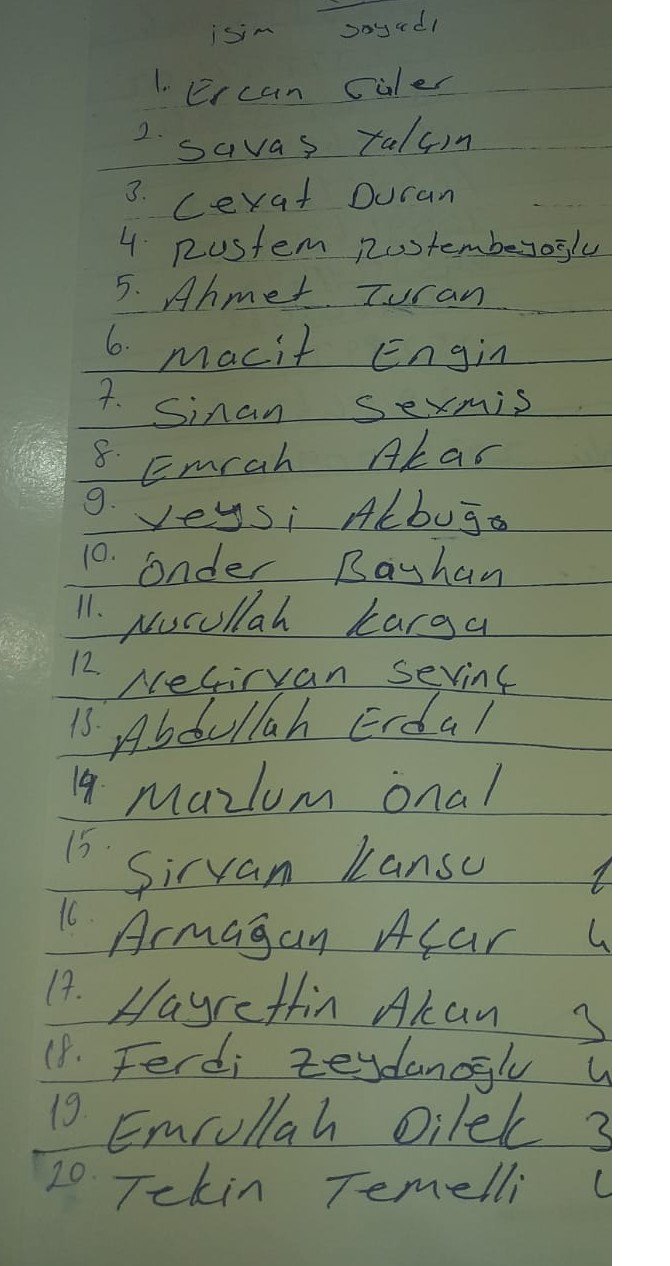 isim soyadı
1. Ercan Güler
2. Savaş Yalçın
3. Cevat Duran
4. Rustem Rustembeyoğlu
5. Ahmet Turan
6. Macit Engin
7. Sinan Sevmiş
8. Emrah Akar
9. Veysi Akbuğa
10. Önder Bayhan
11. Nurullah Karga
12. Neçirvan Sevinç
13. Abdullah Erdal
14. Mazlum Önal
15. Şirvan Kansu
16. Armağan Açar 4
17. Hayrettin Akan 3
18. Ferdi Zeydanoğlu 4
19. Emrullah Dilek 3
20. Tekin Temelli